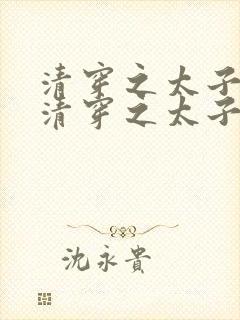 清穿之太子
清穿之太子
沈永貴